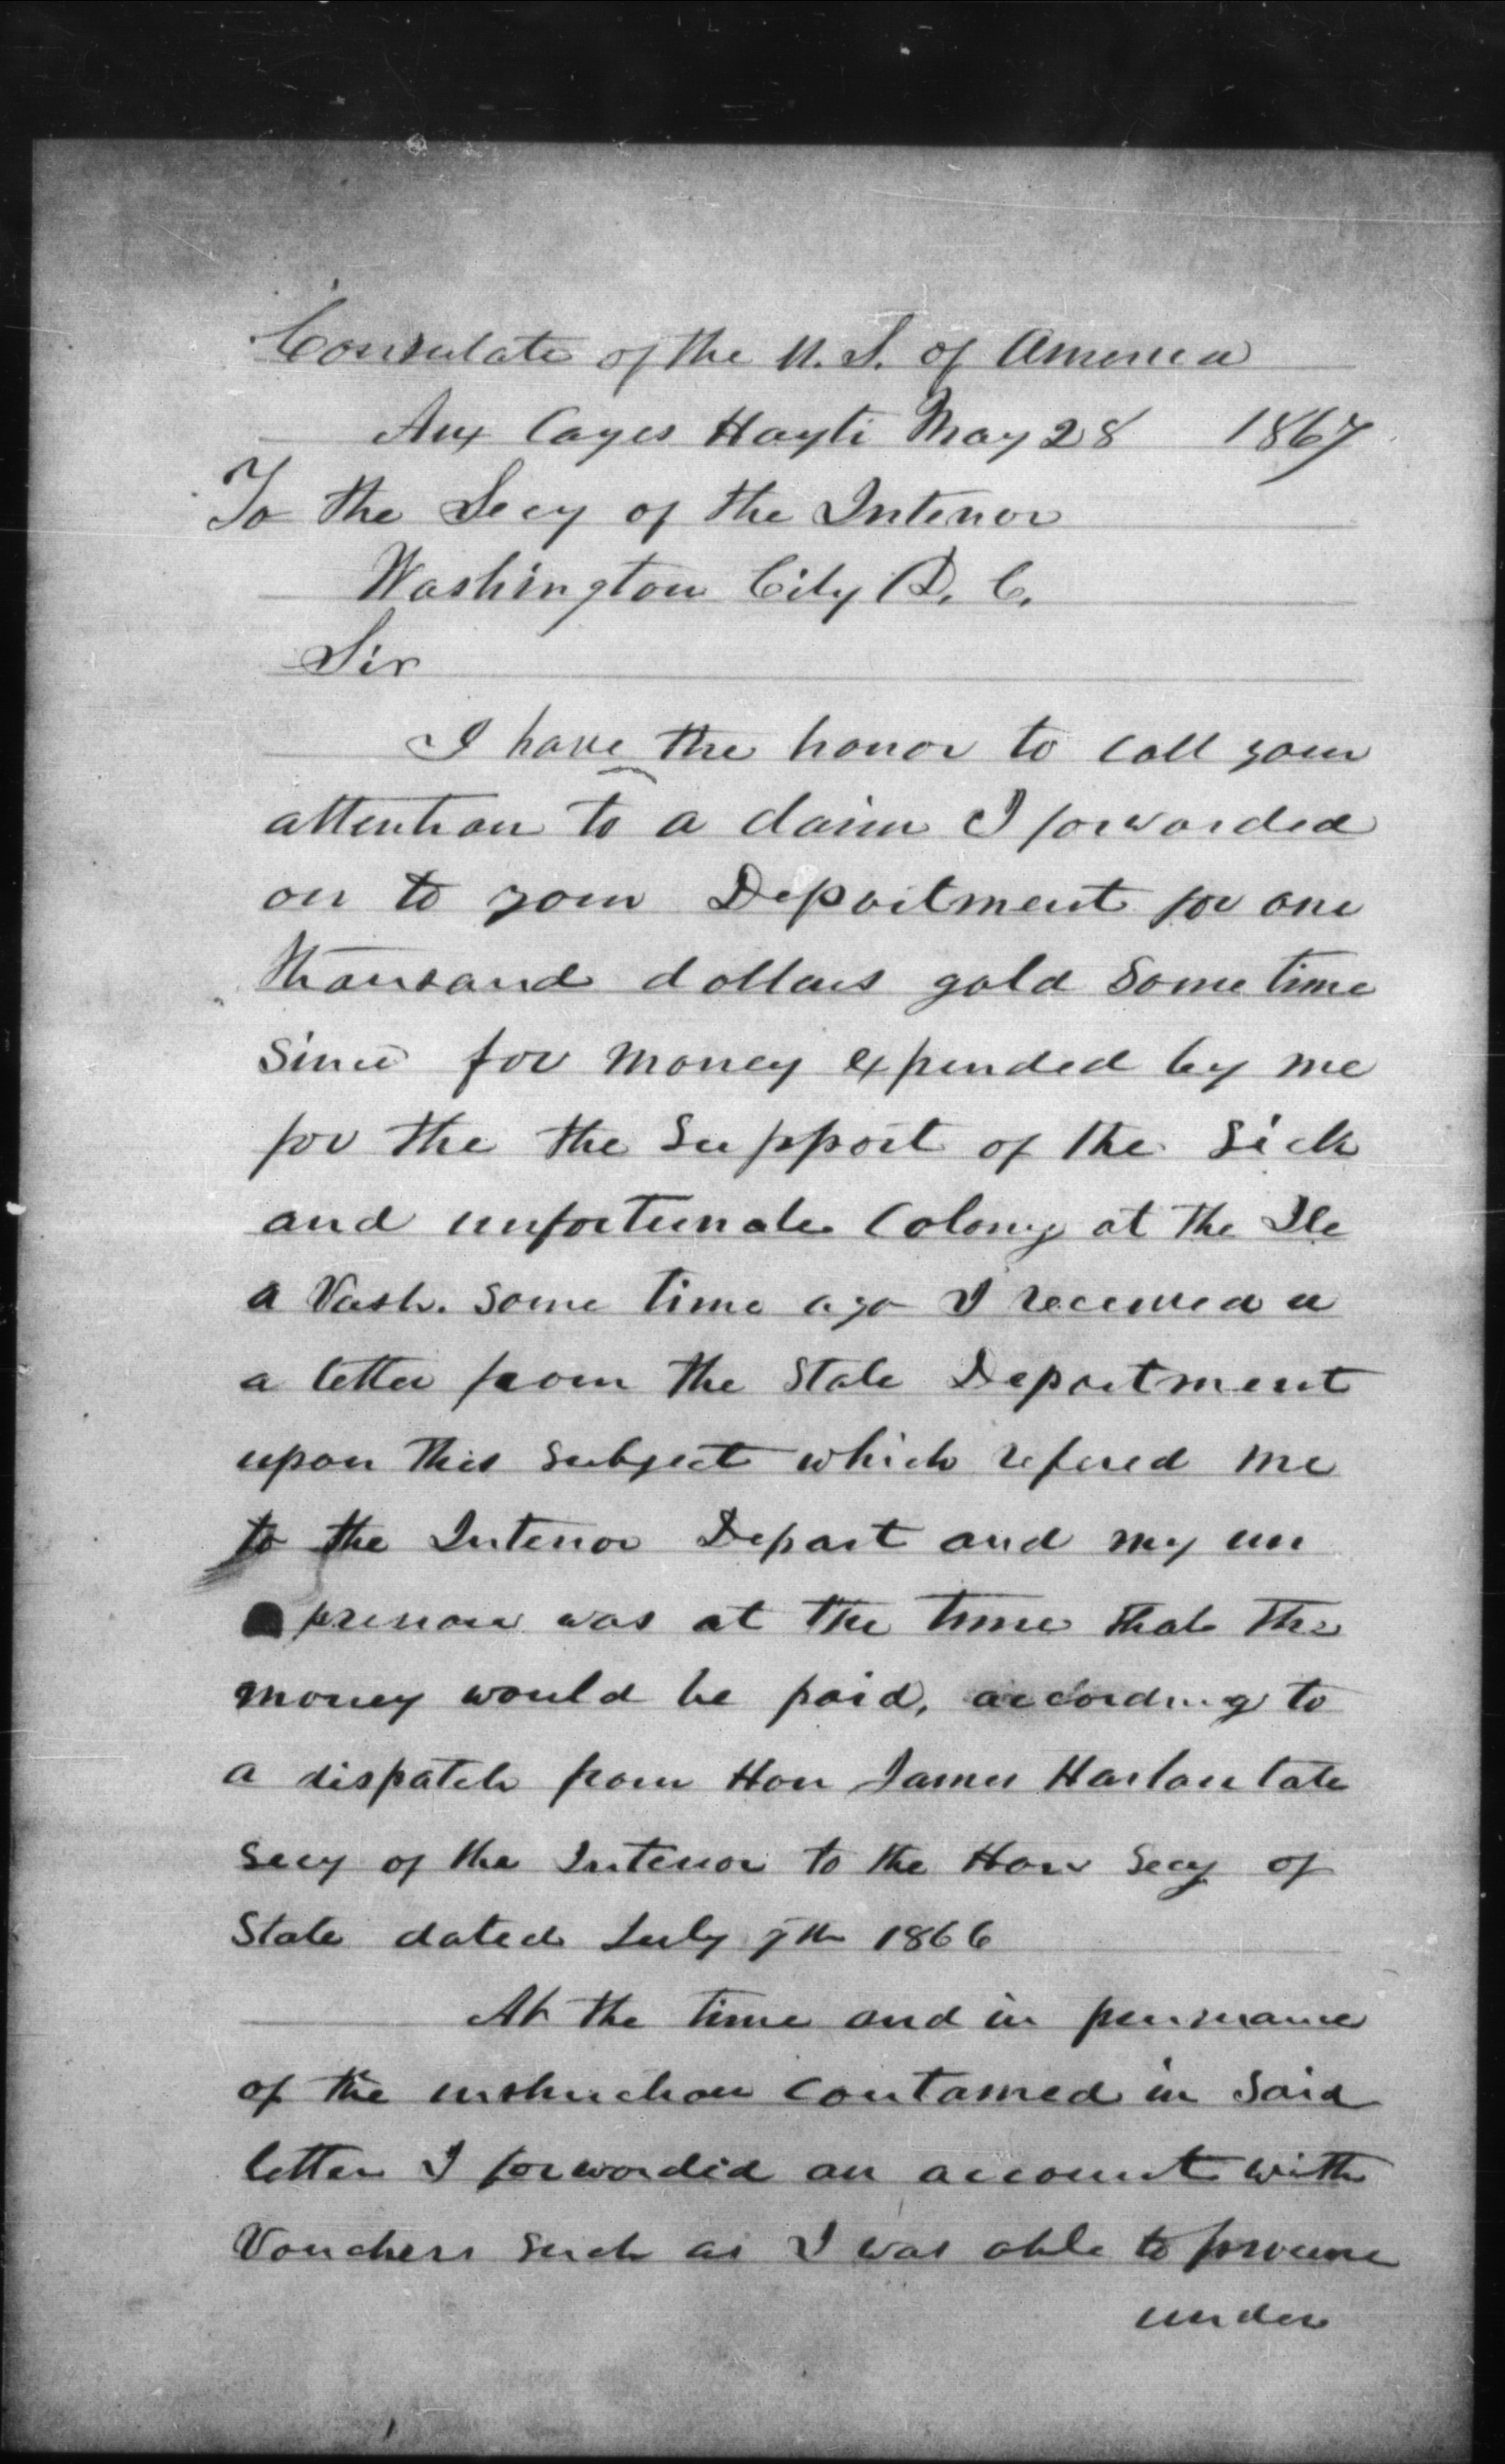 Consulate of the U. S. of America
Aux Cayes Hayti May 28 1867
To the Secy of the Interior
Washington City D. C.
Sir
I have the honor to call your
attention to a claim I forwarded
on to your Department for one
thousand dollars gold some time
since for money expended by me
for the the support of the sick
and unfortunate Colony at the Ile
a Vash. some time ago I received a
a letter from the State Department
upon this subject which refered me
to the Interior Depart and my im
pression was at the time that the
money would be paid, according to
a dispatch from Hon James Harlan late
Secy of the Interior to the Hon Secy of
State dated July 7th 1866
At the time and in pursuance
of the instruction contained in said
letter I forwarded an account with
Vouchers such as I was able to procure
under